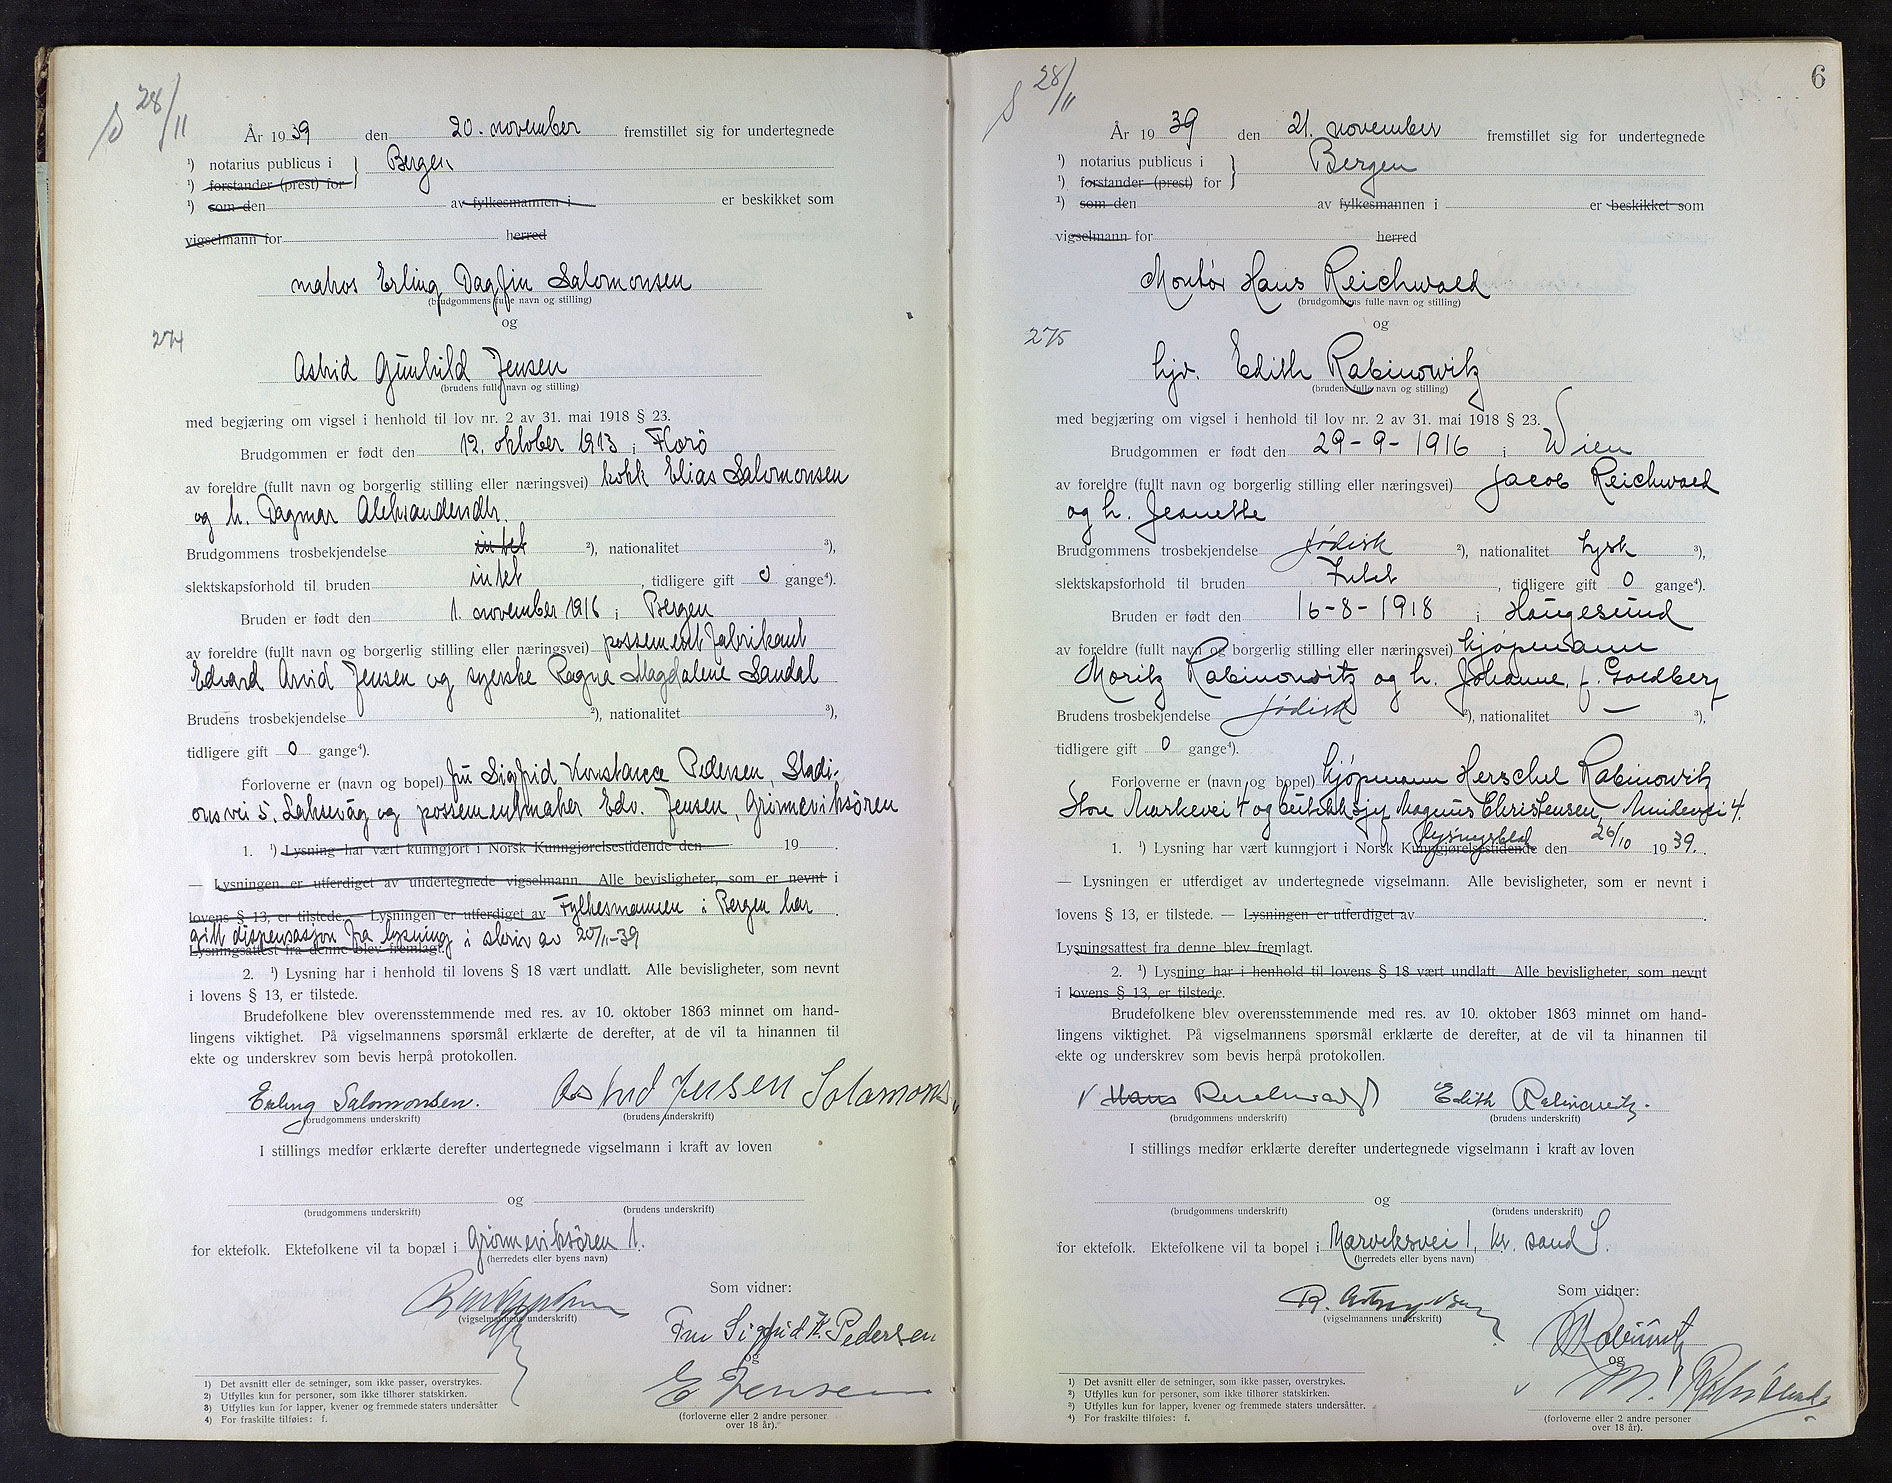 28/11
År 1939 den 20. november fremstillet sig for undertegnede
¹) notarius publicus i } Bergen
¹) forstander (prest) for
¹) som den av fylkesmannen i er beskikket som
vigselmann for herred
matros Erling Dagfin Salomonsen
(brudgommens fulle navn og stilling)
og
274
Astrid Gunhild Jensen
(brudens fulle navn og stilling)
med begjæring om vigsel i henhold til lov nr. 2 av 31. mai 1918 § 23.
Brudgommen er født den 12. oktober 1913 i Florö
av foreldre (fullt navn og borgerlig stilling eller næringsvei) kokk Elias Salomonsen
og h. Dagmar
Brudgommens trosbekjendelse intet ²), nationalitet ³),
slektskapsforhold til bruden intet, tidligere gift 0 gange⁴).
Bruden er født den 1. november 1916 i Bergen
av foreldre (fullt navn og borgerlig stilling eller næringsvei) possementfabrikant
Edvard Arvid Jensen og syerske Ragna Magdalene Sandal
Brudens trosbekjendelse ²), nationalitet ³),
tidligere gift 0 gange⁴).
Forloverne er (navn og bopel) fru Sigfrid Konstance Pedersen, Stadi-
onsvei 5. Laksevåg og possementmaker Edv. Jensen, Grönneviksören
1. ¹) Lysning har vært kunngjort i Norsk Kunngjørelsestidende den 19 .
— Lysningen er utferdiget av undertegnede vigselmann. Alle bevisligheter, som er nevnt i
lovens § 13, er tilstede. — Lysningen er utferdiget av Fylkesmannen i Bergen har
gitt dispensasjon fra lysning i skriv av 20/11-39
Lysningsattest fra denne blev fremlagt.
2. ¹) Lysning har i henhold til lovens § 18 vært undlatt. Alle bevisligheter, som nevnt
i lovens § 13, er tilstede.
Brudefolkene blev overensstemmende med res. av 10. oktober 1863 minnet om hand-
lingens viktighet. På vigselmannens spørsmål erklærte de derefter, at de vil ta hinannen til
ekte og underskrev som bevis herpå protokollen.
Erling Salomonsen. Astrid Jensen
(brudgommens underskrift) (brudens underskrift)
I stillings medfør erklærte derefter undertegnede vigselmann i kraft av loven
og
(brudgommens underskrift) (brudens underskrift)
for ektefolk. Ektefolkene vil ta bopæl i Grönneviksören 1.
(herredets eller byens navn)
Som vidner:
(vigselmannens underskrift)
Fru Sigfrid K. Pedersen
og
E Jensen
(forloverne eller 2 andre personer
over 18 år).
1) Det avsnitt eller de setninger, som ikke passer, overstrykes.
2) Utfylles kun for personer, som ikke tilhører statskirken.
3) Utfylles kun for lapper, kvener og fremmede staters undersåtter
4) For fraskilte tilføies: f.
28/11
6
År 1939 den 21. november fremstillet sig for undertegnede
¹) notarius publicus i } Bergen
¹) forstander (prest) for
¹) som den av fylkesmannen i er beskikket som
vigselmann for herred
Montør Hans Reichwald
(brudgommens fulle navn og stilling)
og
275
hjv. Edith Rabinowitz
(brudens fulle navn og stilling)
med begjæring om vigsel i henhold til lov nr. 2 av 31. mai 1918 § 23.
Brudgommen er født den 29-9-1916 i Wien
av foreldre (fullt navn og borgerlig stilling eller næringsvei) Jacob Reichwald
og h. Jeanette
Brudgommens trosbekjendelse jødisk ²), nationalitet tysk ³),
slektskapsforhold til bruden Intet, tidligere gift 0 gange⁴).
Bruden er født den 16-8-1918 i Haugesund
av foreldre (fullt navn og borgerlig stilling eller næringsvei) kjøpmann
Moritz Rabinowitz og h. Johanne, f. Goldberg
Brudens trosbekjendelse jødisk ²), nationalitet — ³),
tidligere gift 0 gange⁴).
Forloverne er (navn og bopel) kjøpmann Herschel Rabinowitz
Store Markevei 4 og Magnus Christensen, 4.
1. ¹) Lysning har vært kunngjort i Norsk Kunngjørelsestidende lysningsblad den 26/10 1939.
— Lysningen er utferdiget av undertegnede vigselmann. Alle bevisligheter, som er nevnt i
lovens § 13, er tilstede. — Lysningen er utferdiget av .
Lysningsattest fra denne blev fremlagt.
2. ¹) Lysning har i henhold til lovens § 18 vært undlatt Alle bevisligheter, som nevnt
i lovens § 13, er tilstede.
Brudefolkene blev overensstemmende med res. av 10. oktober 1863 minnet om hand-
lingens viktighet. På vigselmannens spørsmål erklærte de derefter, at de vil ta hinannen til
ekte og underskrev som bevis herpå protokollen.
Hans Reichwald Edith Rabinowitz.
(brudgommens underskrift) (brudens underskrift)
I stillings medfør erklærte derefter undertegnede vigselmann i kraft av loven
og
(brudgommens underskrift) (brudens underskrift)
for ektefolk. Ektefolkene vil ta bopel i Marviksvei 1, kr. sand S.
(herredets eller byens navn)
Som vidner:
(vigselmannens underskrift)
og
(forloverne eller 2 andre personer
over 18 år).
¹) Det avsnitt eller de setninger, som ikke passer, overstrykes.
²) Utfylles kun for personer, som ikke tilhører statskirken.
³) Utfylles kun for lapper, kvener og fremmede staters undersåtter.
⁴) For fraskilte tilføies: f.